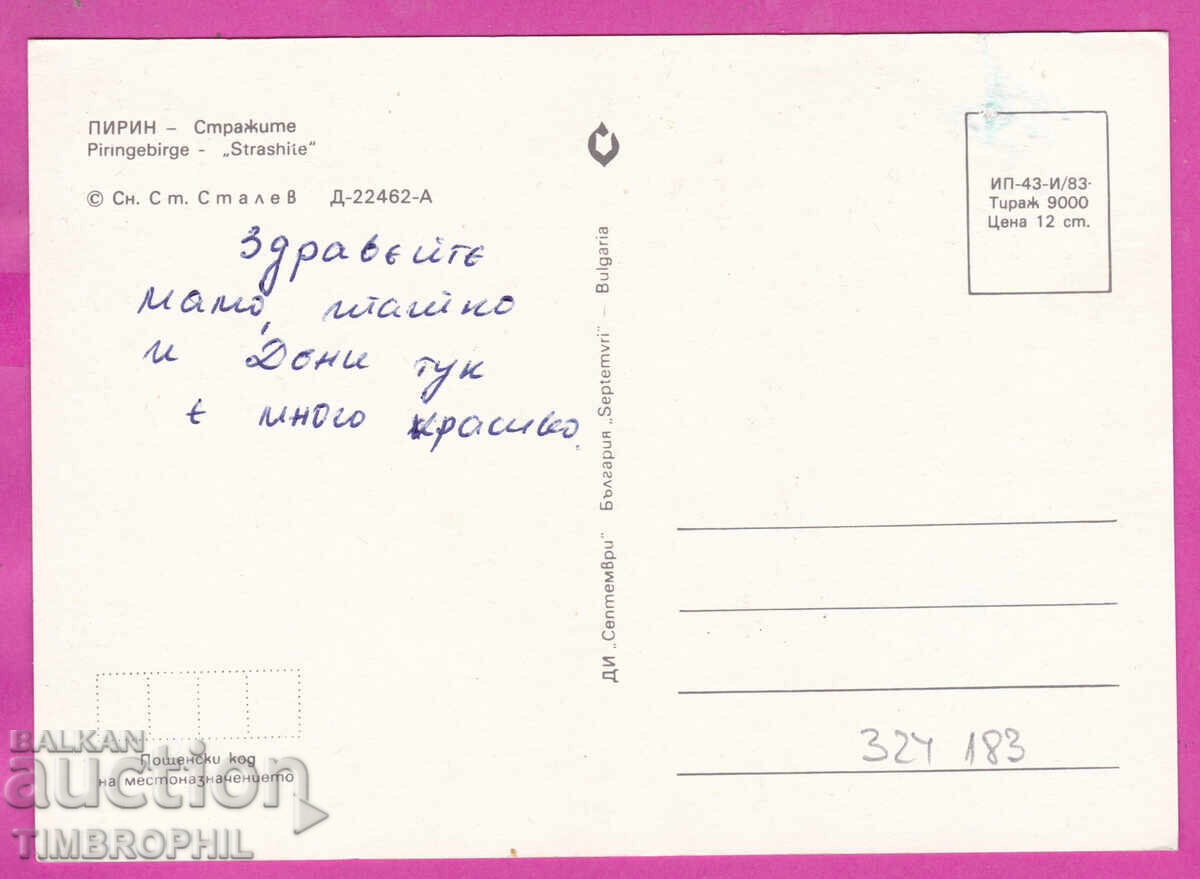 ПИРИН – Стражите
Piringebirge - „Strashite"
© Сн. Ст. Сталев Д-22462-А
Здравейте
мамо, татко
и Дони тук
е много красиво.
ДИ „Септември" България „Septemvri" – Bulgaria
ИП-43-И/83·
Тираж 9000
Цена 12 ст.
324 183
Пощенски код
на местоназначението
BALKAN
auction
TIMBROPHIL